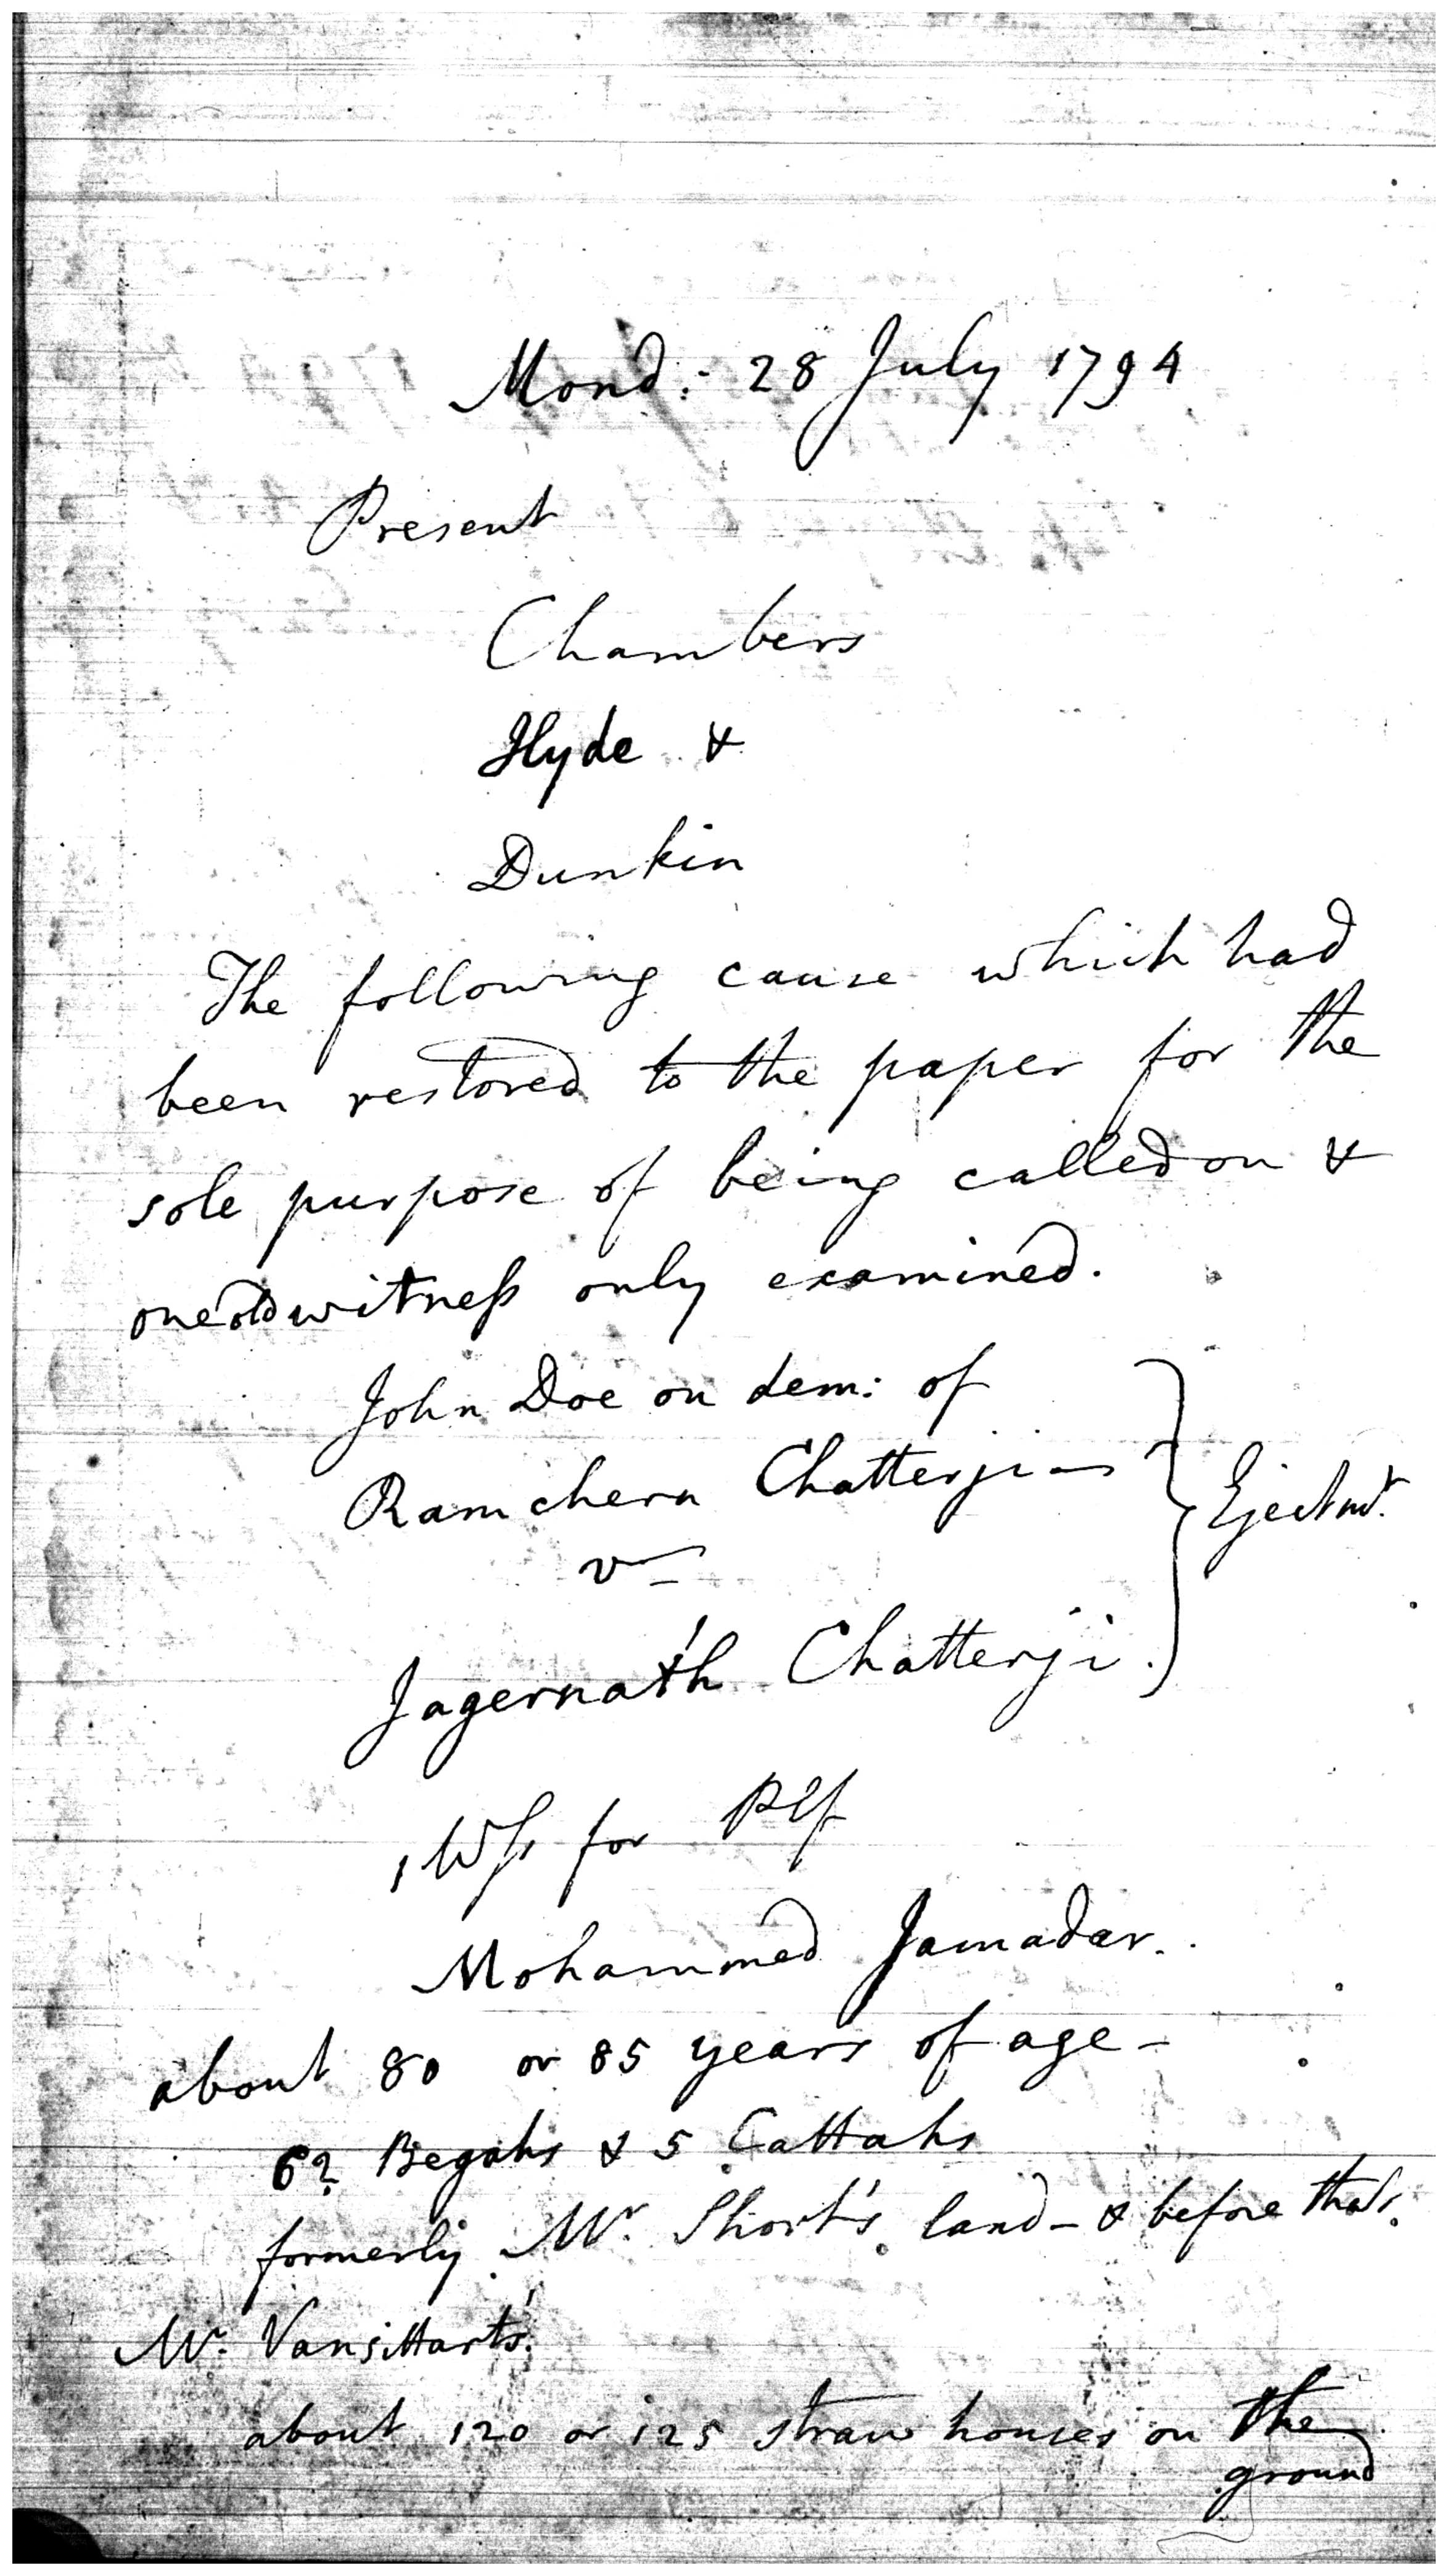 Mond:- 28 July 1794
Present
Chambers
Hyde &
Dunkin
The following cause which had
been restored to the paper for the
sole purpose of being called on &
one old witness only examined.
John Doe on dem: of
Ramchern Chatterji
vs
Jagernath Chatterji.
Ejectmt.
1 Wss for Plf
Mohammed Jamadar.
about 80 or 85 years of age -
62 Begahs & 5 Cattahs
formerly Mr. Short's land - & before that
Mr. Vansittart's.
about 120 or 125 straw houses on the
ground